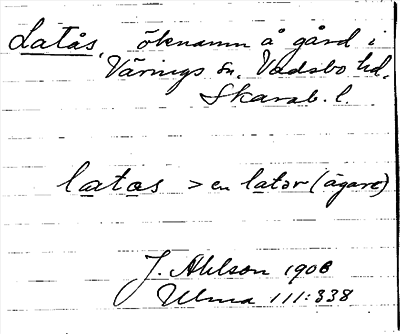 Latås, öknamn å gård i
Värings sn. Vadsbo hd.
Skarab. l.
latas > en latər (ägare)
J. Ahlson 1906
Ulma 111:338